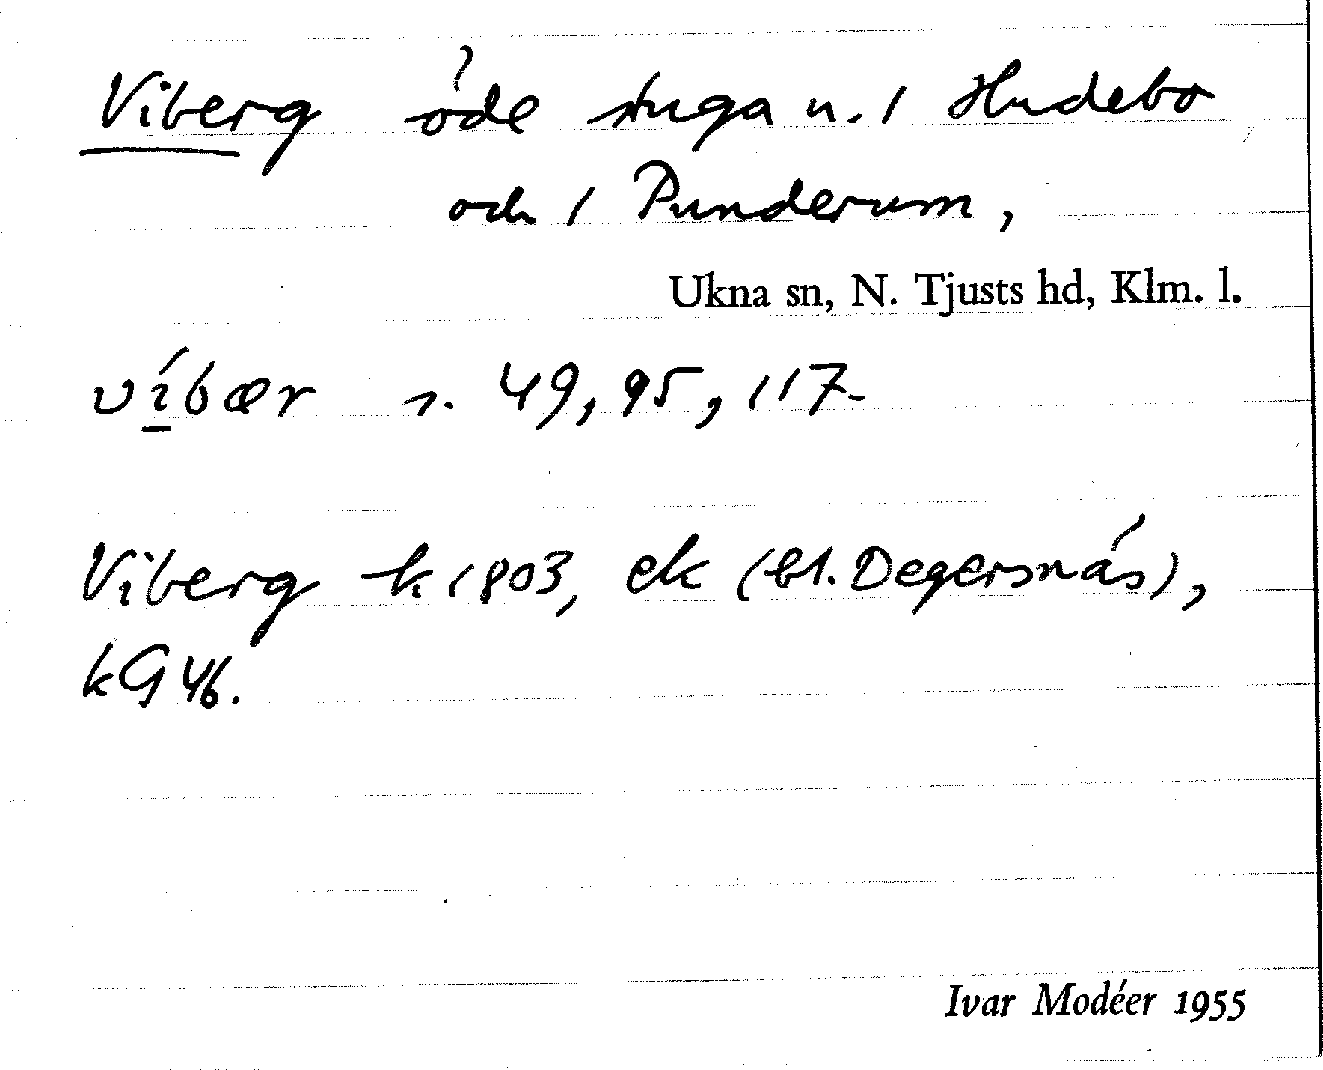 Viberg öde stuga u. 1 Hudebo
och 1 Punderum,
Ukna sn, N. Tjusts hd, Klm. l.
víbær s. 49, 95, 117.
Viberg k 1803, ek (bl. Degersnäs),
kG 46.
Ivar Modéer 1955